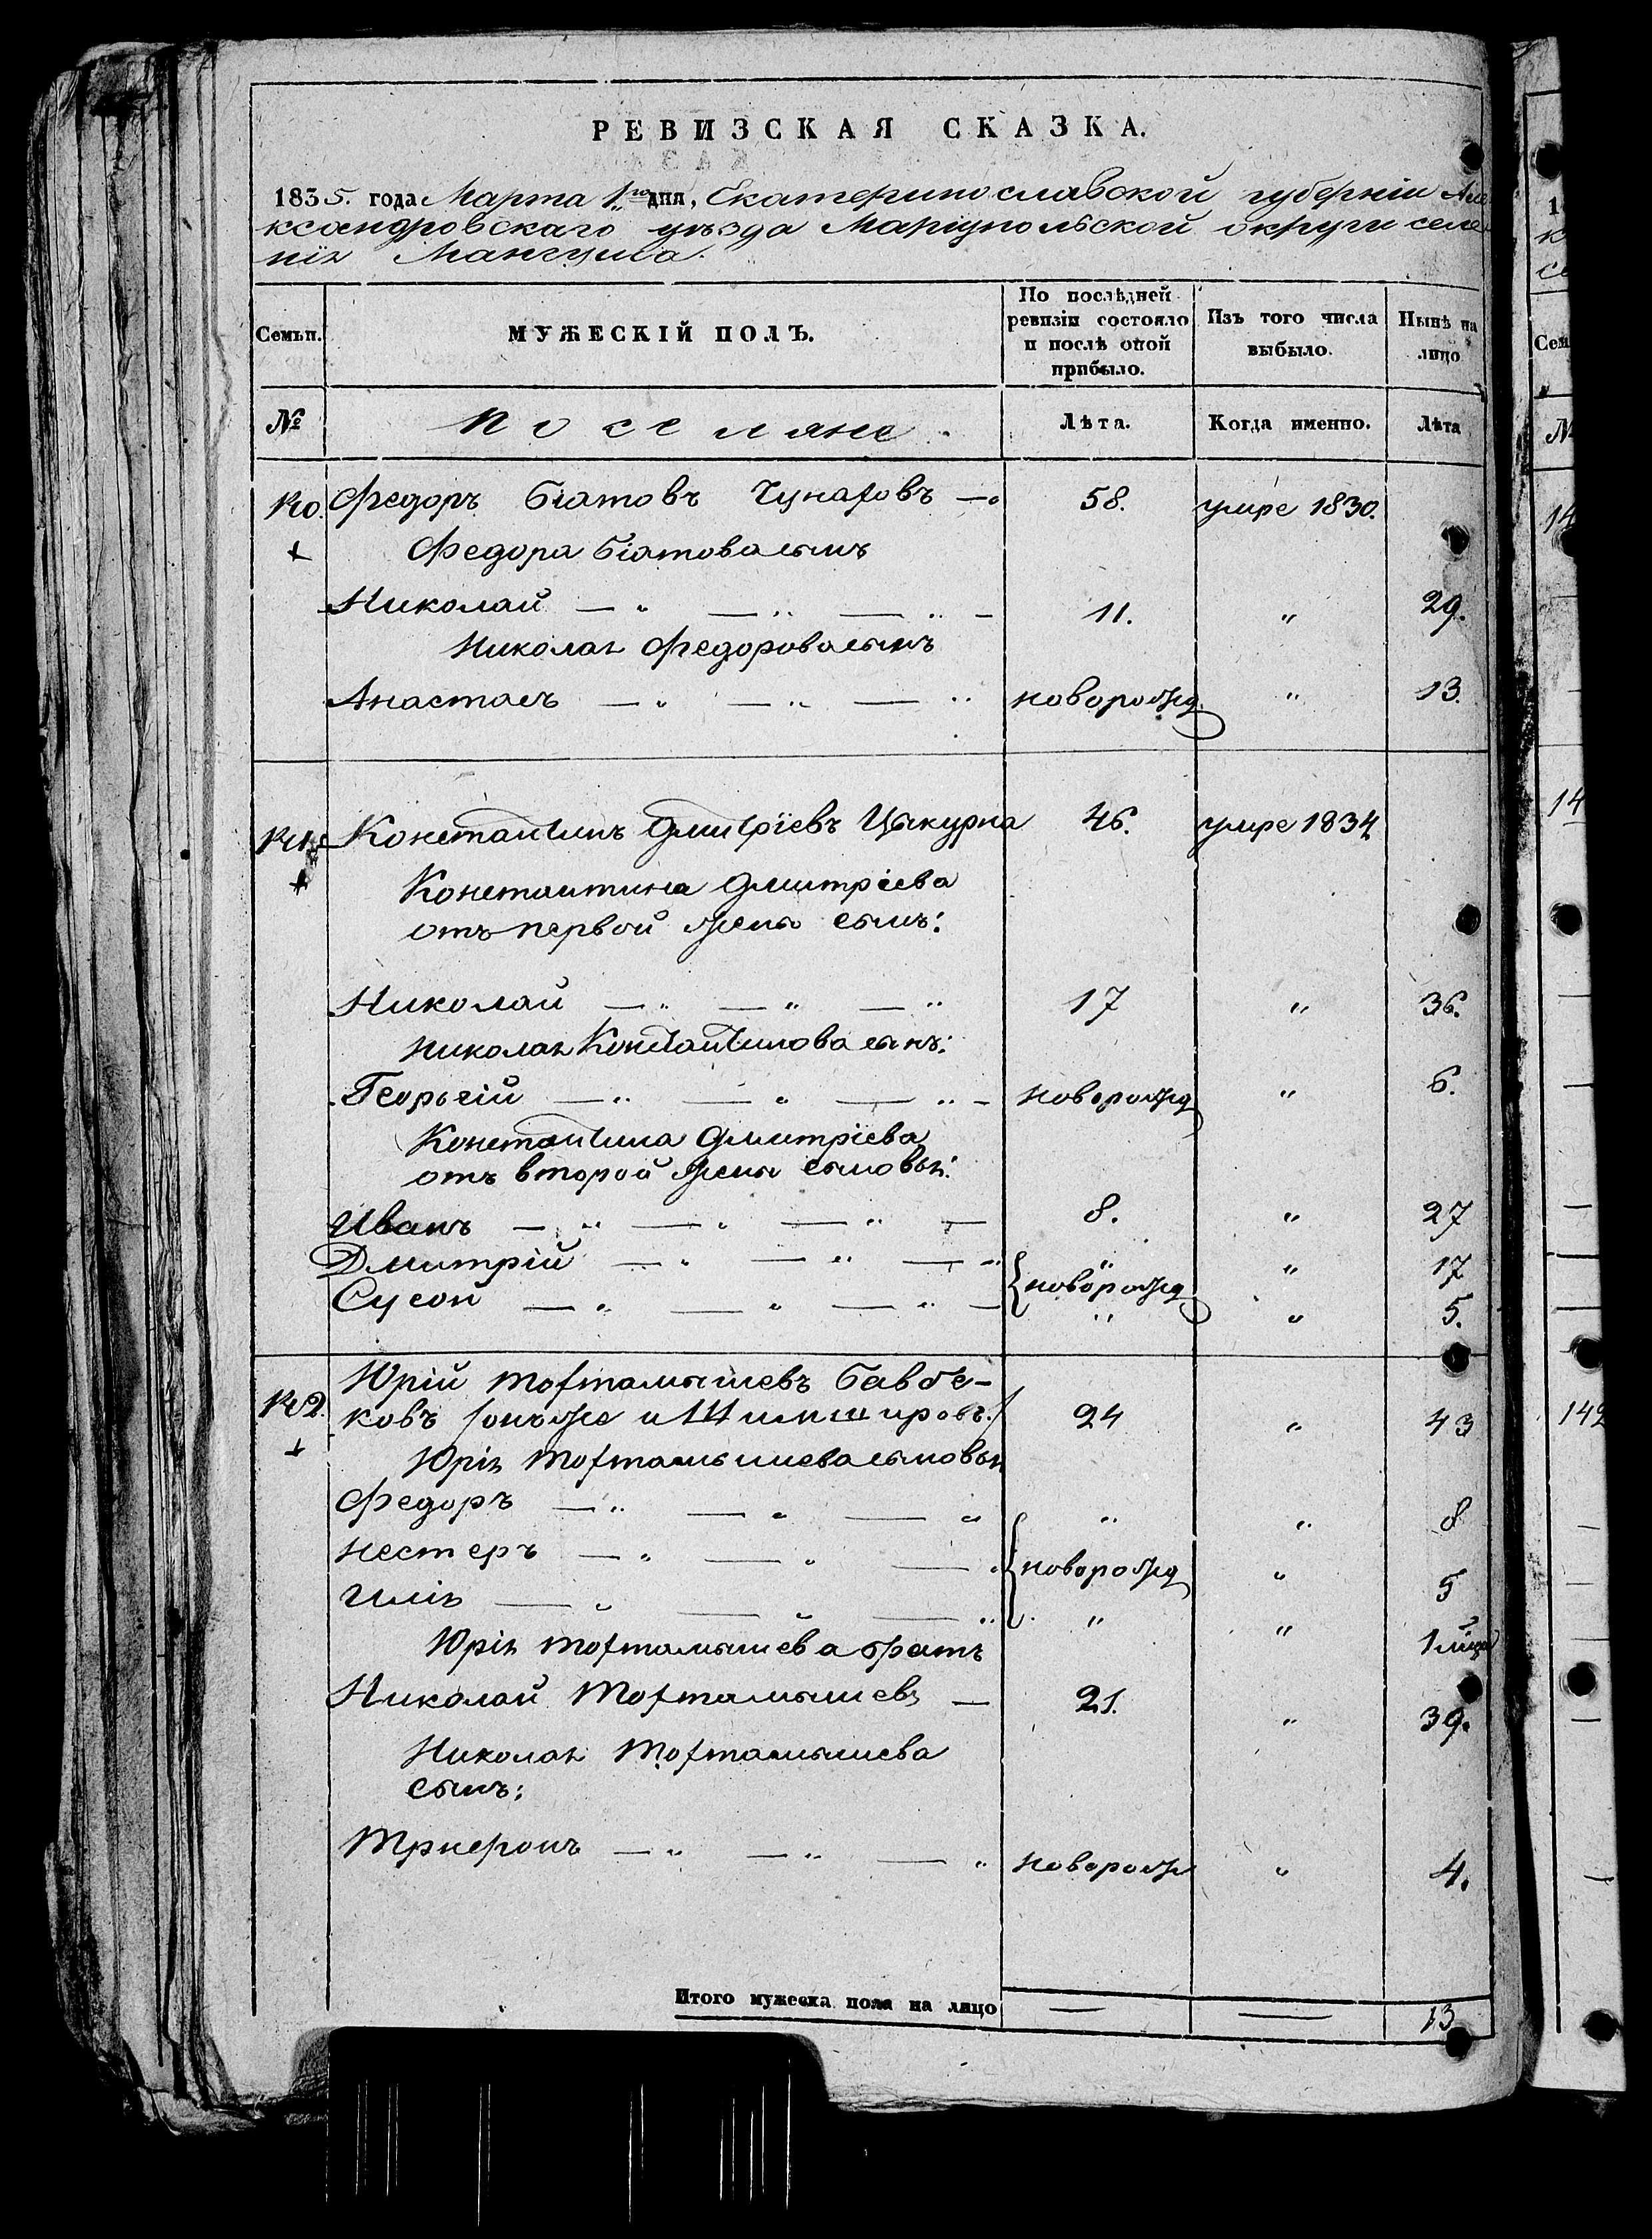 РЕВИЗСКАЯ СКАЗКА.
1835. года Марта 1го дня, Екатеринославской губерніи Але
ксандровскаго уѣзда Маріупольской округи селе
нія Мангуша.
Семьи.
МУЖЕСКІЙ ПОЛЪ.
По послѣдней ревизіи состояло и послѣ оной прибыло.
Изъ того числа выбыло.
Нынѣ на лицо
№
Поселяне.
Лѣта.
Когда именно.
Лѣта
140. Федоръ Біатовъ Чунаховъ — 58. умре 1830.
Федора Біатова сынъ
Николай — „ — „ — „ — 11. „ 29.
Николая Федорова сынъ
Анастасъ — „ — „ — „ новорожд. „ 13.
141. Константинъ Дмитріевъ Цыкурна 46. умре 1834
Константина Дмитріева
отъ первой жены сынъ:
Николай — „ — „ — „ 17 „ 36.
Николая Константинова сынъ:
Георьгій — „ — „ — „ — новорожд „ 6.
Константина Дмитріева
отъ второй жены сыновья:
Иванъ — „ — „ — „ — 8. „ 27
Дмитрій — „ — „ — „ „ „ 17
новорожд
Сусой — „ — „ — „ — „ „ 5.
142. Юрій Тохтамышевъ Бавбе-
ковъ /онъ же и Шимшировъ./ 24 „ 43
Юрія Тохтамышева сыновья
Федоръ — „ — „ — „ „ „ 8
Нестеръ — „ — „ — „ новорожд „ 5
Илія — „ — „ — „ „ „ 1 мѣця
Юрія Тохтамышева братъ
Николай Тохтамышевъ — 21. „ 39.
Николая Тохтамышева
сынъ:
Трифонъ — „ — „ — „ новорож „ 4.
Итого мужеска пола на лицо — — 13